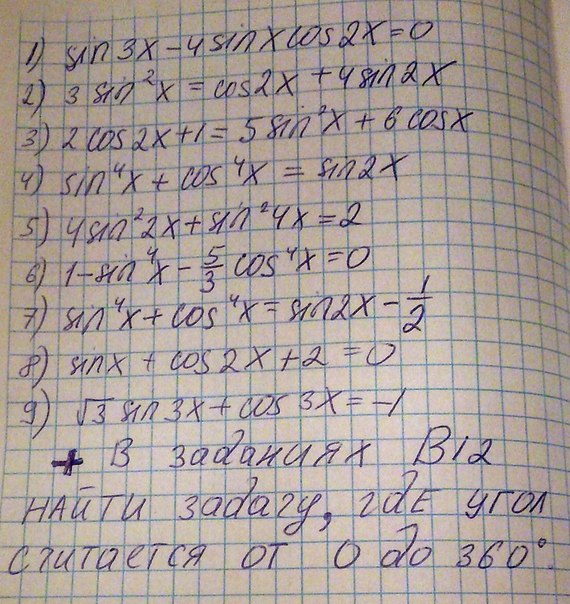 1) sin3x-4sinxcos2x=0
2) 3 sin²x = cos2x + 4sin2x
3) 2 cos2x+1= 5sin²x + 6cosx
4) sin⁴x + cos⁴x = sin2x
5) 4sin²2x+sin²4x=2
6) 1-sin⁴x - 5/3 cos⁴x=0
7) sin⁴x+cos⁴x= sin2x - 1/2
8) sinx + cos2x+2=0
9) √3 sin3x+cos3x=-1
+ В заданиях В12
найти задачу, где угол
считается от 0 до 360°.